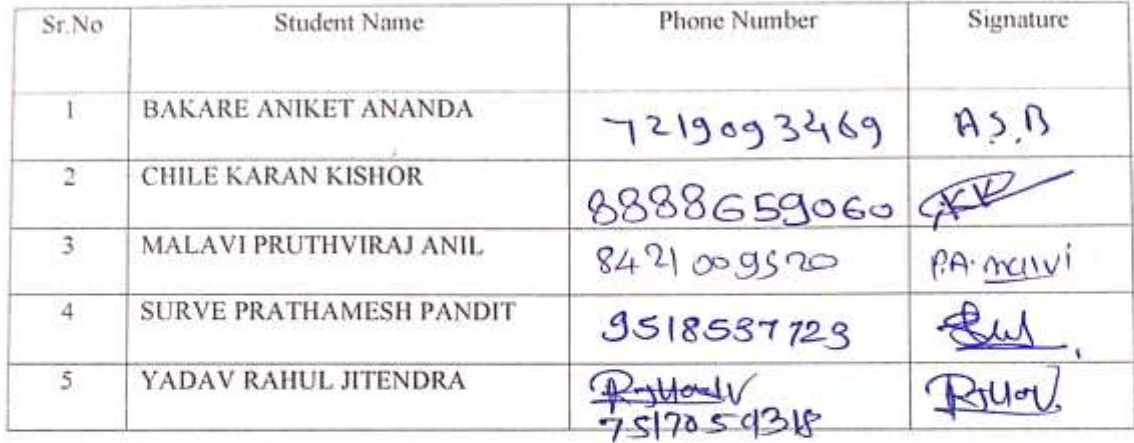 Sr.No Student Name Phone Number Signature
1 BAKARE ANIKET ANANDA 7219093469 A.S.B
2 CHILE KARAN KISHOR 8888659060
3 MALAVI PRUTHVIRAJ ANIL 8421009520 P.A. malvi
4 SURVE PRATHAMESH PANDIT 9518597729
5 YADAV RAHUL JITENDRA